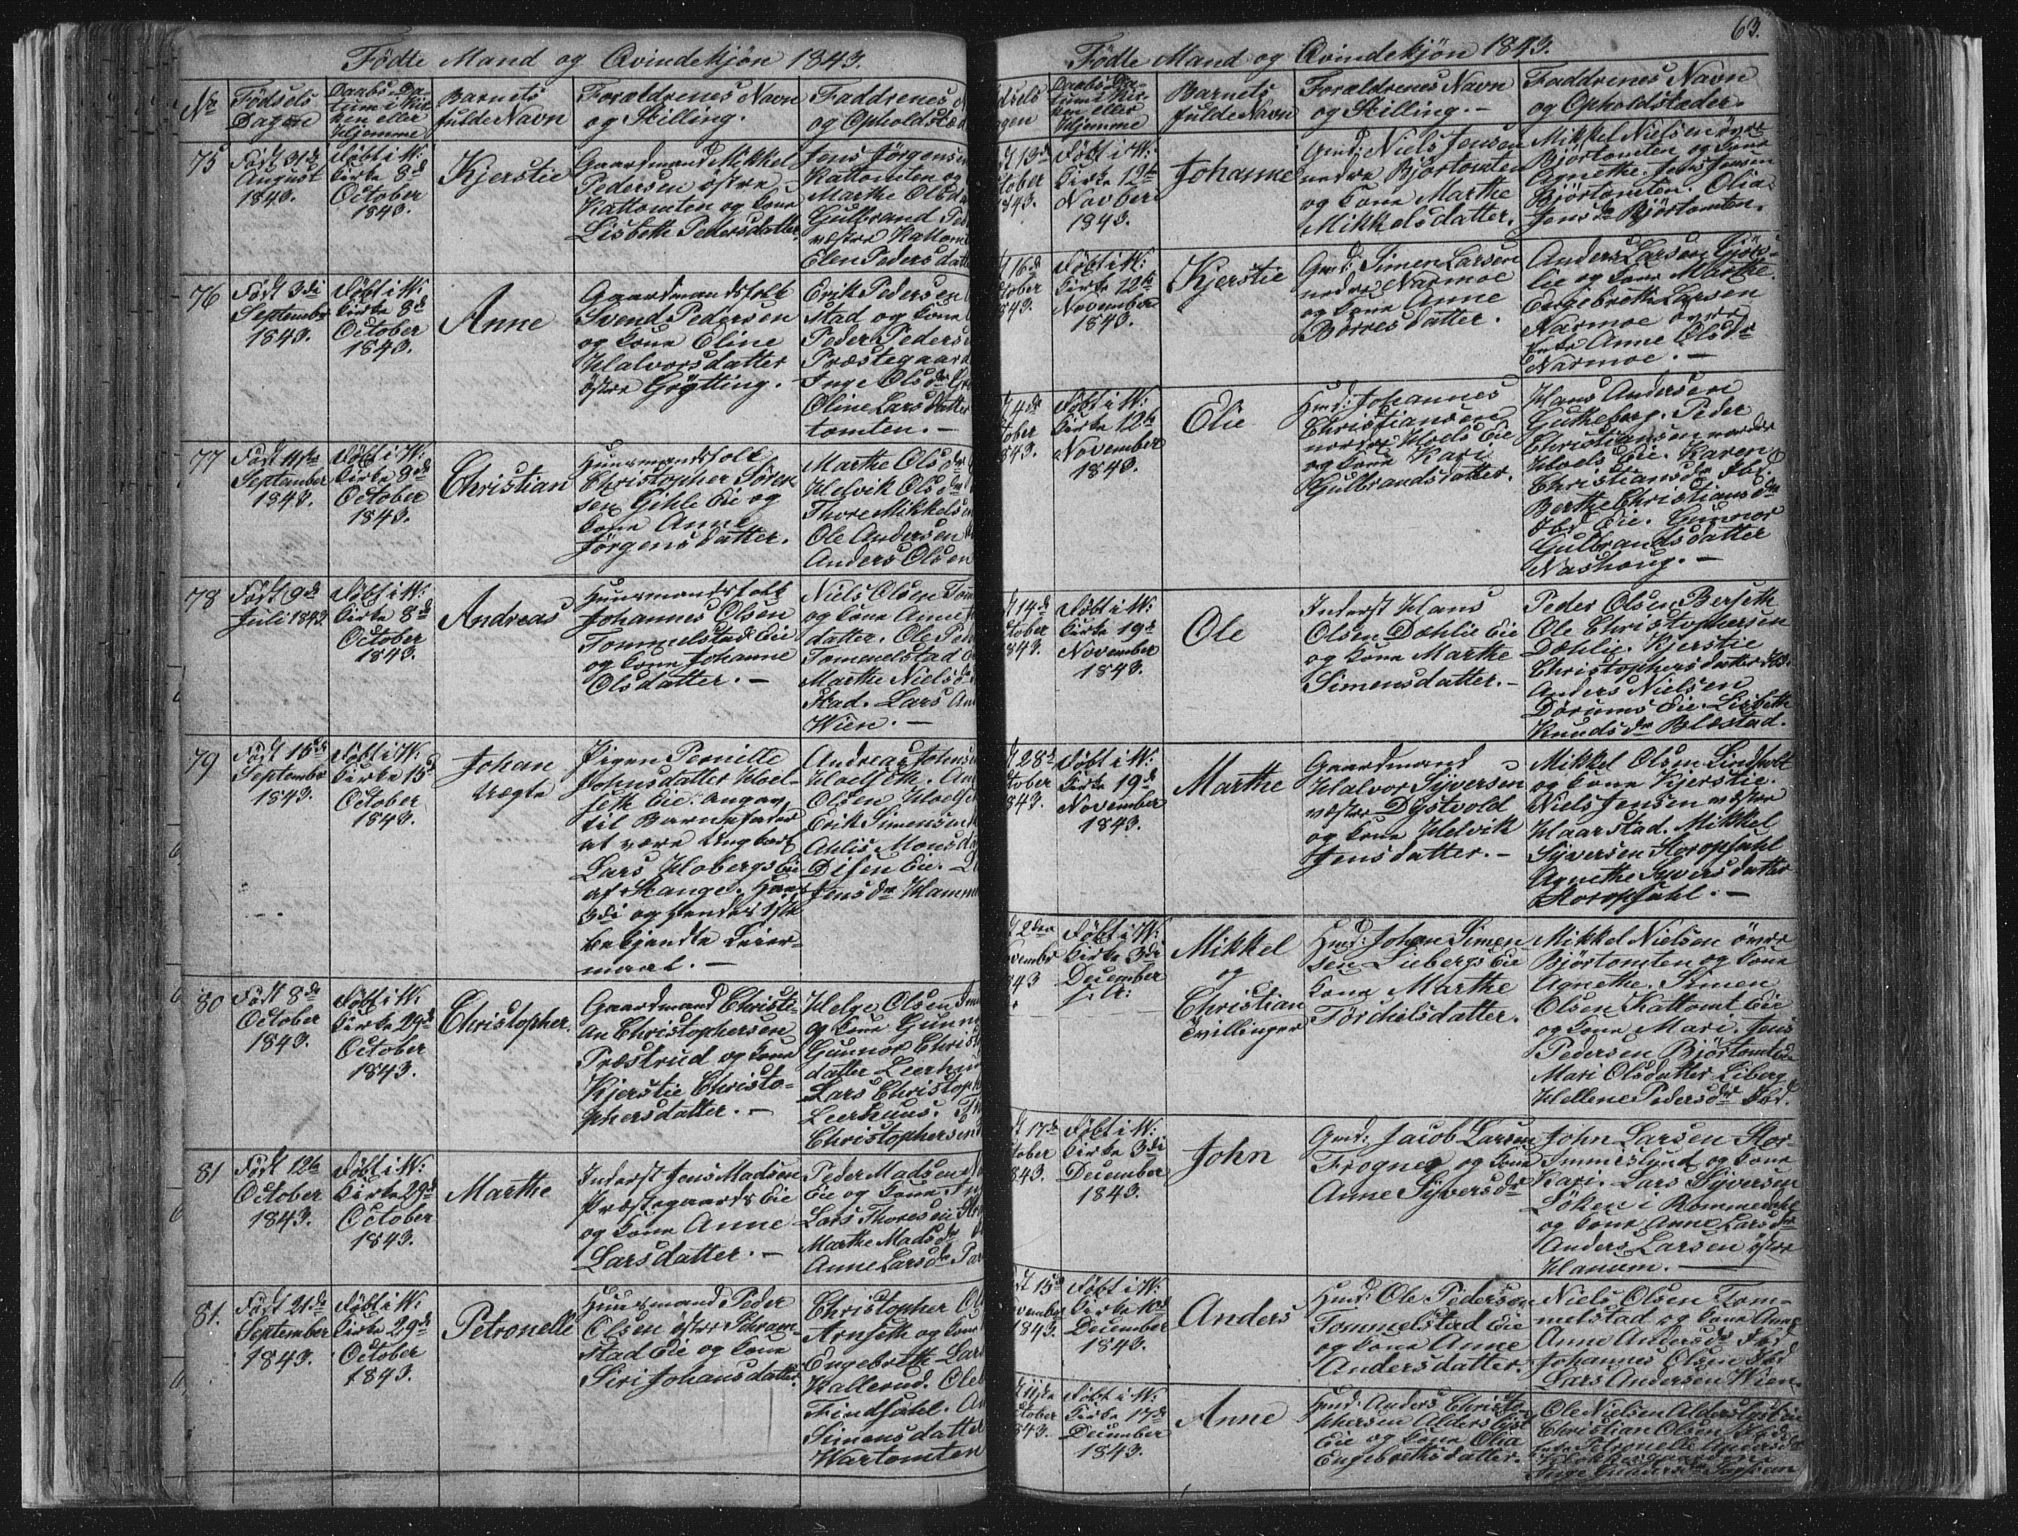 Fødte Mand og Qvindekjøn 1843.
No
Fødsels
Dagene
Daabs-Da-
tum i Kir-
ken eller
Hjemme
Barnets
fulde Navn
Forældrenes Navn
og Stilling.
Faddrenes
og Opholdstæd
75
Født 31de
August
1843.
Døbt i W:
Kirke 8d
October
1843.
Kjerstie
Gaardmand Mikkel
Pedersen østre
Kattomten og Kone
Lisbeth Pedersdatter
Jens Jørgensen
Kattomten og
Marthe Olsda
Gulbrand Ped
vestre Kattom
Elen Pedersdatt
76
Født 3di
September
1843.
Døbt i W:
Kirke 8d
October
1843.
Anne
Gaardmandsfolk
Svend Pedersen
og Kone Eline
Halvorsdatter
østre Grøtting.
Erik Pedersen
stad og Kone
Peder Peders
Præstegaard
Inge Olsdr Grø
Oline Larsdatter
tomten. —
77
Født 11te
September
1843.
Døbt i W:
Kirke 8de
October
1843.
Christian
Huusmandsfolk
Christopher Sören-
sen Gihle Eie og
Kone Anne
Jørgensdatter.
Marthe Olsdr
Helvik Olsdr
Thore Mikkels
Ole Andersen
Anders Olsen
78
Født 9de
Juli 1843
Døbt i W:
Kirke 8d
October
1843.
Andreas
Huusmandsfolk
Johannes Olsen
Tommelstad Eie
og Kone Johanne
Olsdatter. —
Niels Olsen Tom
og Kone Anne
datter. Ole Ped
Tommelstad
Marthe Niels
stad. Lars An
Wien. —
79
Født 15de
September
1843.
Døbt i W:
Kirke 15d
October
1843.
Johan
Uægte
Pigen Pernille
Johnsdatter Hoel-
seth Eie. Angav
til Barnefader
at være Ungkarl
Lars Hobergs Eie
af Stange. Hans
3di og Hendes 1ste
bekjendte Leier-
maal. —
Andreas Johns
Hoelseth. An
Olsen Hoelse
Erik Simensen
Ahlis Monsda
Disen Eie.
Jensdr Hamme
80
Født 8de
October
1843.
Døbt i W:
Kirke 29d
October
1843.
Christopher.
Gaardmand Christi-
an Christophersen
Præstrud og Kone
Kjerstie Christo-
phersdatter. —
Helge Olsen
og Kone Gunn
Gunnor Christ
datter Leerhu
Lars Christoph
Leerhuus.
Christophersen
81
Født 12te
October
1843.
Døbt i W:
Kirke 29d
October
1843.
Marthe
Inderst Jens Madsen
Præstegaards Eie
og Kone Anne
Larsdatter. —
Peder Madsen
Eie og Kone
Lars Thoresen
Marthe Madsdr
Anne Larsdr
81.
Født 21de
September
1843.
Døbt i W:
Kirke 29d
October
1843.
Petronelle
Huusmand Peder
Olsen
stad Eie og Kone
Siri Johansdatter.
Christopher Ols
Arnseth og Kone
Engebreth Lars
Kallerud. Ole
Findsahl.
Simensdatter
Wartomten
63.
Fødte Mand og Qvindekjøn 1843.
dsels
agen
Daabs-Da-
tum i Kir-
ken eller
Hjemme
Barnets
fulde Navn
Forældrenes Navn
og Stilling. —
Faddrenes Navn
og Opholdstæder.
13d
tober
1843.
Døbt i W.
Kirke 12te
Novbere
1843.
Johanne
Gmd: Niels Jensen
nedre Bjørtomten
og Kone Marthe
Mikkelsdatter.
Mikkel Nielsen øvre
Bjørtomten og Kone
Agnethe. Jens Jensen
Bjørtomten. Olia
Jensdr Bjørtomten.
16de
tober
1843.
Døbt i W:
Kirke 12te
November
1843.
Kjerstie
Gmd: Simen Larsen
nedre Narmoe
og Kone Anne
Börresdatter.
Anders Larsen Gjös-
lie og Kone Marthe.
Engebreth Larsen
Narmoe øvre
Anne Olsdr
Narmoe. —
4de
tober
1843.
Døbt i W:
Kirke 12te
November
1843.
Elie
Hmd: Johannes
Christiansen
nordre Hoels Eie
og Kone Kari
Gulbrandsdatter.
Hans Andersen
Gutheberg. Peder
Christiansen nordre
Hoels Eie. Karen
Christiansdr Ibd.
Berthe Christiansdr
Ibd Eie. Gunnor
Gulbrandsdatter
Nashoug. —
14de
ctober
1843.
Døbt i W:
Kirke 19d
November
1843.
Ole
Inderst Hans
Olsen Dæhlie Eie
og Kone Marthe
Simensdatter. —
Peder Olsen Berseth
Ole Christophersen
Dæhlie. Kjerstie
Christophersdatter Ibd.
Anders Nielsen
Dørums Eie. Lisbeth
Knudsdr Blæstad.
28de
tober
1843.
Døbt i W:
Kirke 19d
November
1843.
Marthe
Gaardmand
Halvor Syversen
vestre Dystvold
og Kone Helvik
Jensdatter. —
Mikkel Olsen Lindholt
og Kone Kjerstie.
Niels Jensen vestre
Haarstad. Mikkel
Syversen Koropsahl
Agnethe Syversdatter
Koropsahl. —
2den
vembr
1843
Døbt i W:
Kirke 3di
December
s. A:
Mikkel
og
Christian
Tvillinger
Hmd: Johan Simen
sen Liebergs Eie
Kone Marthe
Törchilsdatter.
Mikkel Nielsen övre
Bjørtomten og Kone
Agnethe. Simen
Olsen Kattomt Eie
og Kone Mari. Jens
Pedersen Bjørtomt Eie
Mari Olsdatter Liberg
Hellene Pedersdr Ibd.
17de
tober
1843.
Døbt i W:
Kirke 3di
December
1843.
John
Gmd: Jacob Larsen
Frogner og Kone
Anne Syversdr
John Larsen Stor-
Immislund og Kone
Kari. Lars Syversen
Löken i Rommedahl
og Kone Anne Larsdr
Anders Larsen østre
Hanum. —
15d
vember
1843.
Døbt i W:
Kirke 10d
December
1843.
Anders
Hmd: Ole Pedersen
Tommelstad Eie
og Kone Anne
Andersdatter.
Niels Olsen Tom-
melstad og Kone Anne
Anne Andersdr Ibd
Johannes Olsen Ibd
Lars Andersen Wien.
11te
ctober
1843.
Døbt i W:
Kirke 17de
December
1843.
Anne
Hmd: Anders Christo-
phersen Alderslyst
Eie og Kone Olia
Engebrethsdatter.
Ole Nielsen Alderslyst Eie
Christian Olsen Ibd.
Petronelle Andersdr